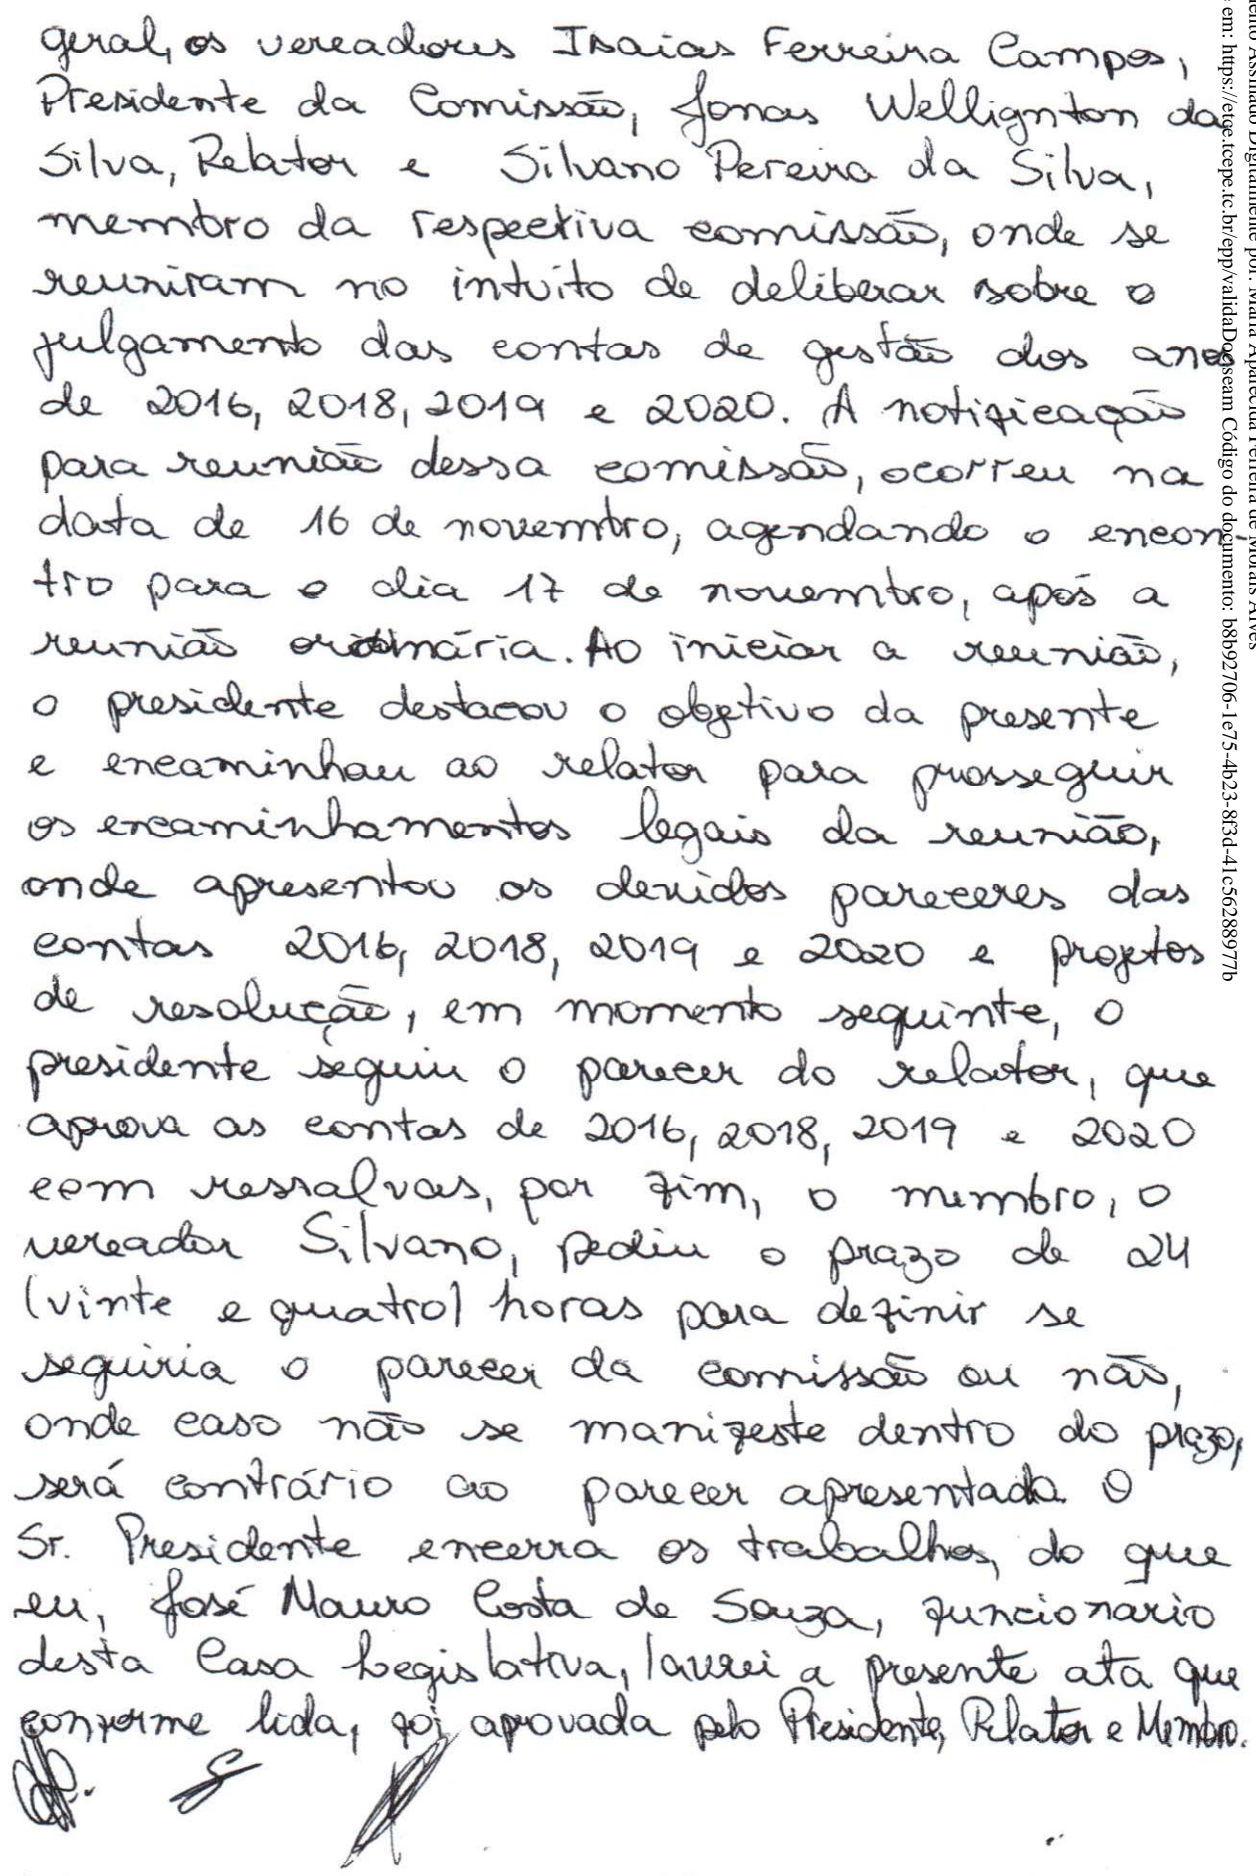 geral, os vereadores Isaias Ferreira Campos,
Presidente da Comissão, Jonas Wellignton da
Silva, Relator e Silvano Pereira da Silva,
membro da respectiva comissão, onde se
reuniram no intuito de deliberar sobre o
julgamento das contas de gestão dos anos
de 2016, 2018, 2019 e 2020. A notificação
para reunião dessa comissão, ocorreu na
data de 16 de novembro, agendando o encon-
tro para o dia 17 de novembro, após a
reunião ordinária. Ao iniciar a reunião,
o presidente destacou o objetivo da presente
e encaminhou ao relator para prosseguir
os encaminhamentos legais da reunião,
onde apresentou os devidos pareceres das
contas 2016, 2018, 2019 e 2020 e projetos
de resolução, em momento seguinte, o
presidente seguiu o parecer do relator, que
aprova as contas de 2016, 2018, 2019 e 2020
com ressalvas, por fim, o membro, o
vereador Silvano, pediu o prazo de 24
(vinte e quatro) horas para definir se
seguiria o parecer da comissão ou não,
onde caso não se manifeste dentro do prazo,
será contrário ao parecer apresentado. O
Sr. Presidente encerra os trabalhos, do que
eu, José Mauro Costa de Souza, funcionario
desta Casa Legislativa, lavrei a presente ata que
conforme lida, foi aprovada pelo Presidente, Relator e Membro.
Assinado Digitalmente por: Maria Aparecida Ferreira de Morais Alves
em: https://etce.tcepe.tc.br/epp/validaDoc.seam Código do documento: b8b92706-1e75-4b23-8f3d-41c56288977b